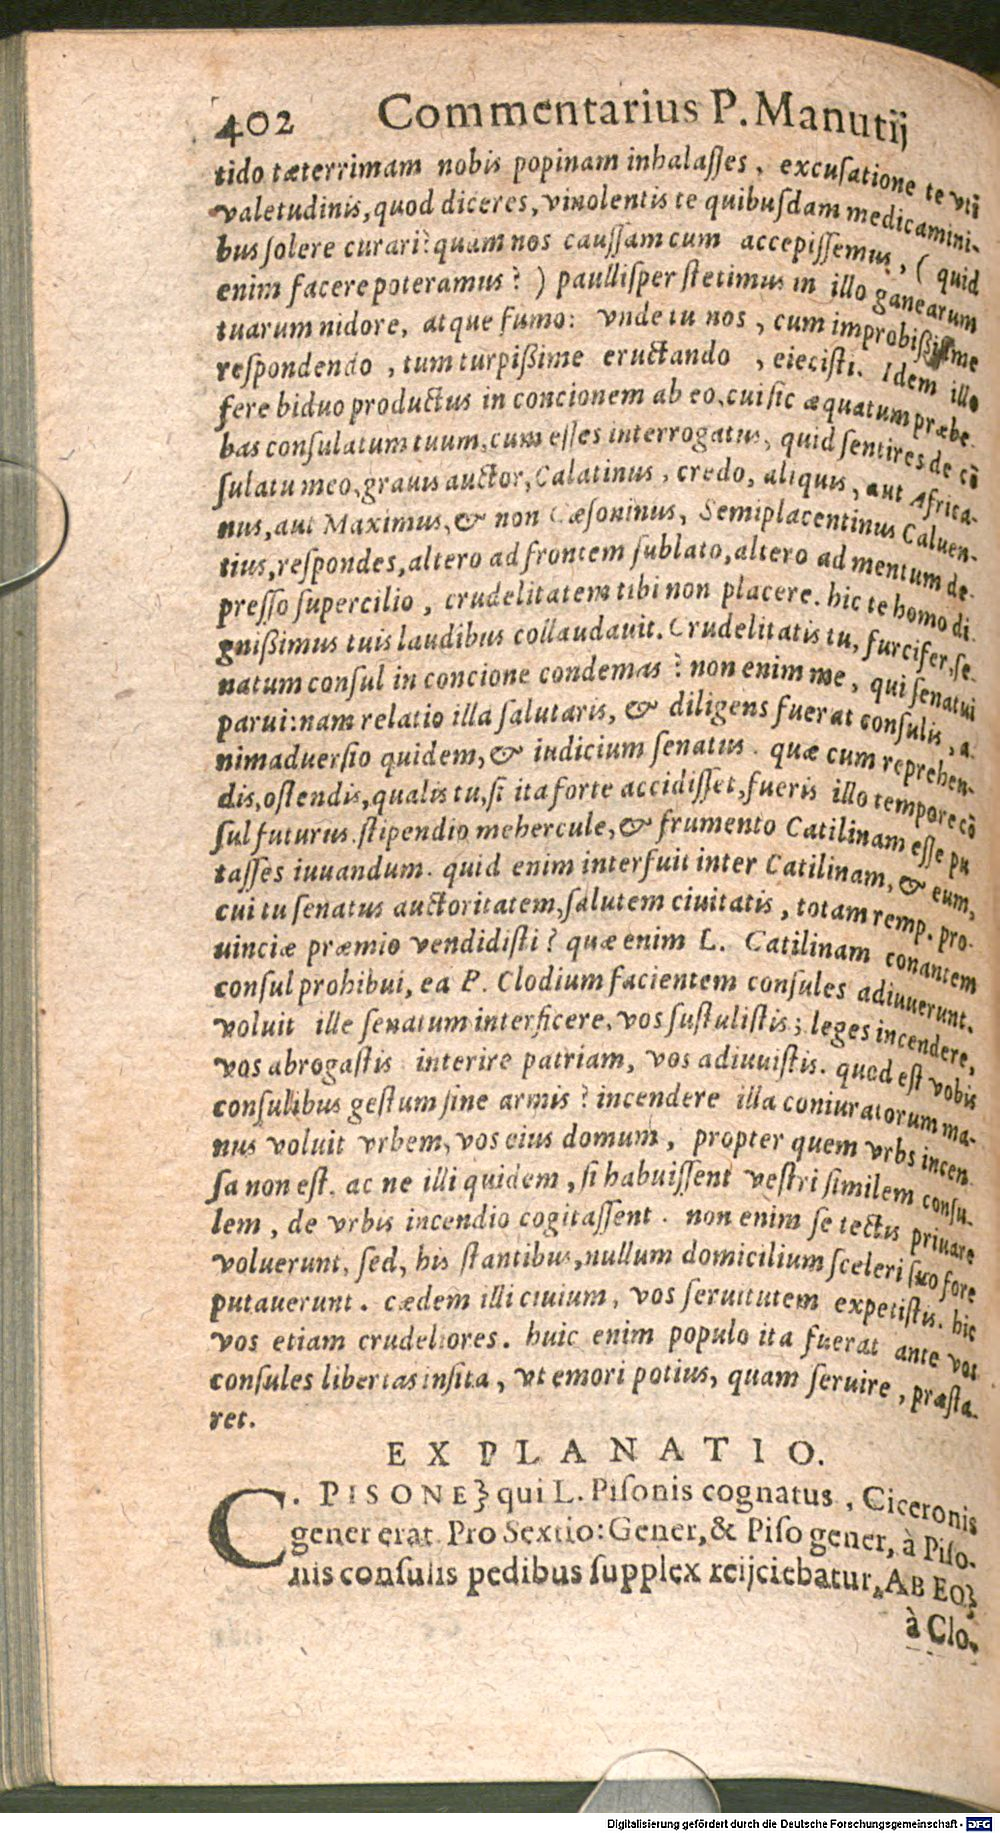 402 Commentarius P. Manutij
tido tæterrimam nobis popinam inhalasses, excusatione te vti
valetudinis, quod diceres, vinolentis te quibusdam medicamini-
bus solere curari? quam nos caussam cum accepissemus, (quid
enim facere poteramus?) paullisper stetimus in illo ganearum
tuarum nidore, atque fumo: vnde tu nos, cum improbissime
respondendo, tum turpissime eructando, eiecisti. Idem illo
fere biduo productus in concionem ab eo, cui sic æquatum præbe-
bas consulatum tuum, cum esses interrogatus, quid sentires de cõ
sulatu meo, grauis auctor, Calatinus, credo, aliquis, aut Africa-
nus, aut Maximus, & non Cæsoninus, Semiplacentinus Caluen-
tius, respondes, altero ad frontem sublato, altero ad mentum de-
presso supercilio, crudelitatem tibi non placere. hic te homo di-
gnissimus tuis laudibus collaudauit. Crudelitatis tu, furcifer, se-
natum consul in concione condemas? non enim me, qui senatui
parui: nam relatio illa salutaris, & diligens fuerat consulis, a-
nimaduersio quidem, & iudicium senatus. quæ cum reprehen-
dis, ostendis, qualis tu, si ita forte accidisset, fueris illo tempore cõ
sul futurus. stipendio mehercule, & frumento Catilinam esse pu
tasses iuuandum. quid enim interfuit inter Catilinam, & eum,
cui tu senatus auctoritatem, salutem ciuitatis, totam remp. pro-
uinciæ præmio vendidisti? quæ enim L. Catilinam conantem
consul prohibui, ea P. Clodium facientem consules adiuuerunt.
voluit ille senatum interficere, vos sustulistis; leges incendere,
vos abrogastis interire patriam, vos adiuuistis. quod est vobis
consulibus gestum sine armis? incendere illa coniuratorum ma-
nus voluit vrbem, vos eius domum, propter quem vrbs incen-
sa non est. ac ne illi quidem, si habuissent vestri similem consu-
lem, de vrbis incendio cogitassent. non enim se tectis priuare
voluerunt, sed, his stantibus, nullum domicilium sceleri suo fore
putauerunt. cædem illi ciuium, vos seruitutem expetistis. hic
vos etiam crudeliores. huic enim populo ita fuerat ante vos
consules libertas insita, vt emori potius, quam seruire, præsta-
ret.
EXPLANATIO.
C. PISONE} qui L. Pisonis cognatus, Ciceronis
gener erat. Pro Sextio: Gener, & Piso gener, à Piso-
nis consulis pedibus supplex reijciebatur, AB EO}
à Clo-
Digitalisierung gefördert durch die Deutsche Forschungsgemeinschaft - DFG